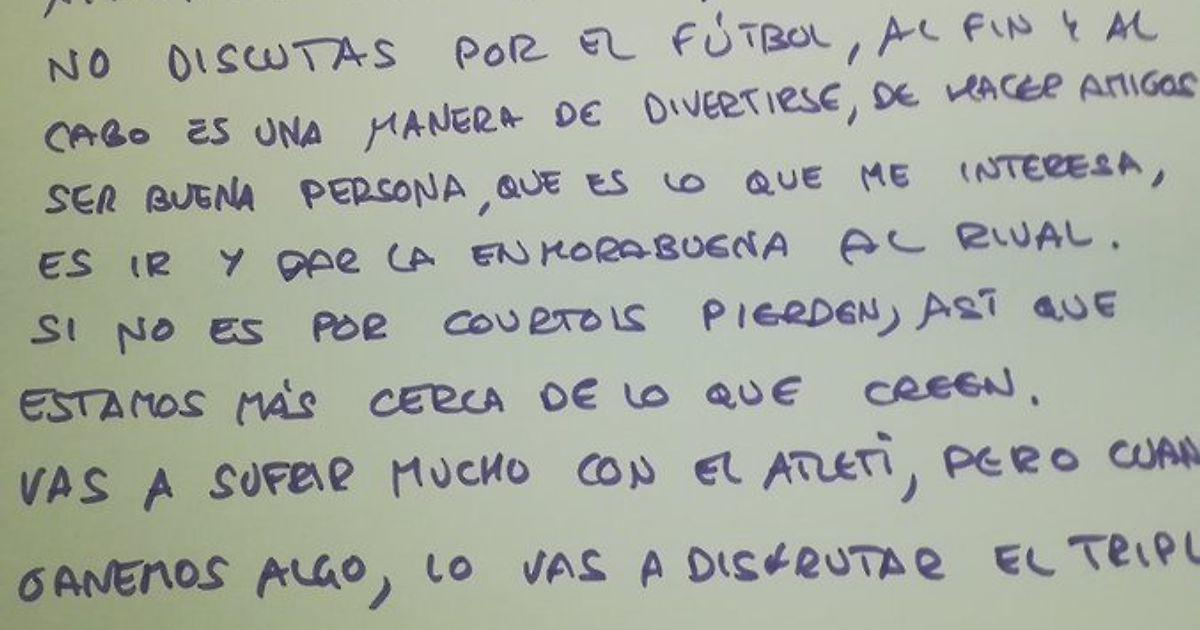 NO DISCUTAS POR EL FÚTBOL, AL FIN Y AL
CABO ES UNA MANERA DE DIVERTIRSE, DE HACER AMIGOS
SER BUENA PERSONA, QUE ES LO QUE ME INTERESA,
ES IR Y DAR LA ENHORABUENA AL RIVAL.
SI NO ES POR COURTOIS PIERDEN, ASÍ QUE
ESTAMOS MÁS CERCA DE LO QUE CREEN.
VAS A SUFRIR MUCHO CON EL ATLETI, PERO CUAN
GANEMOS ALGO, LO VAS A DISFRUTAR EL TRIPL